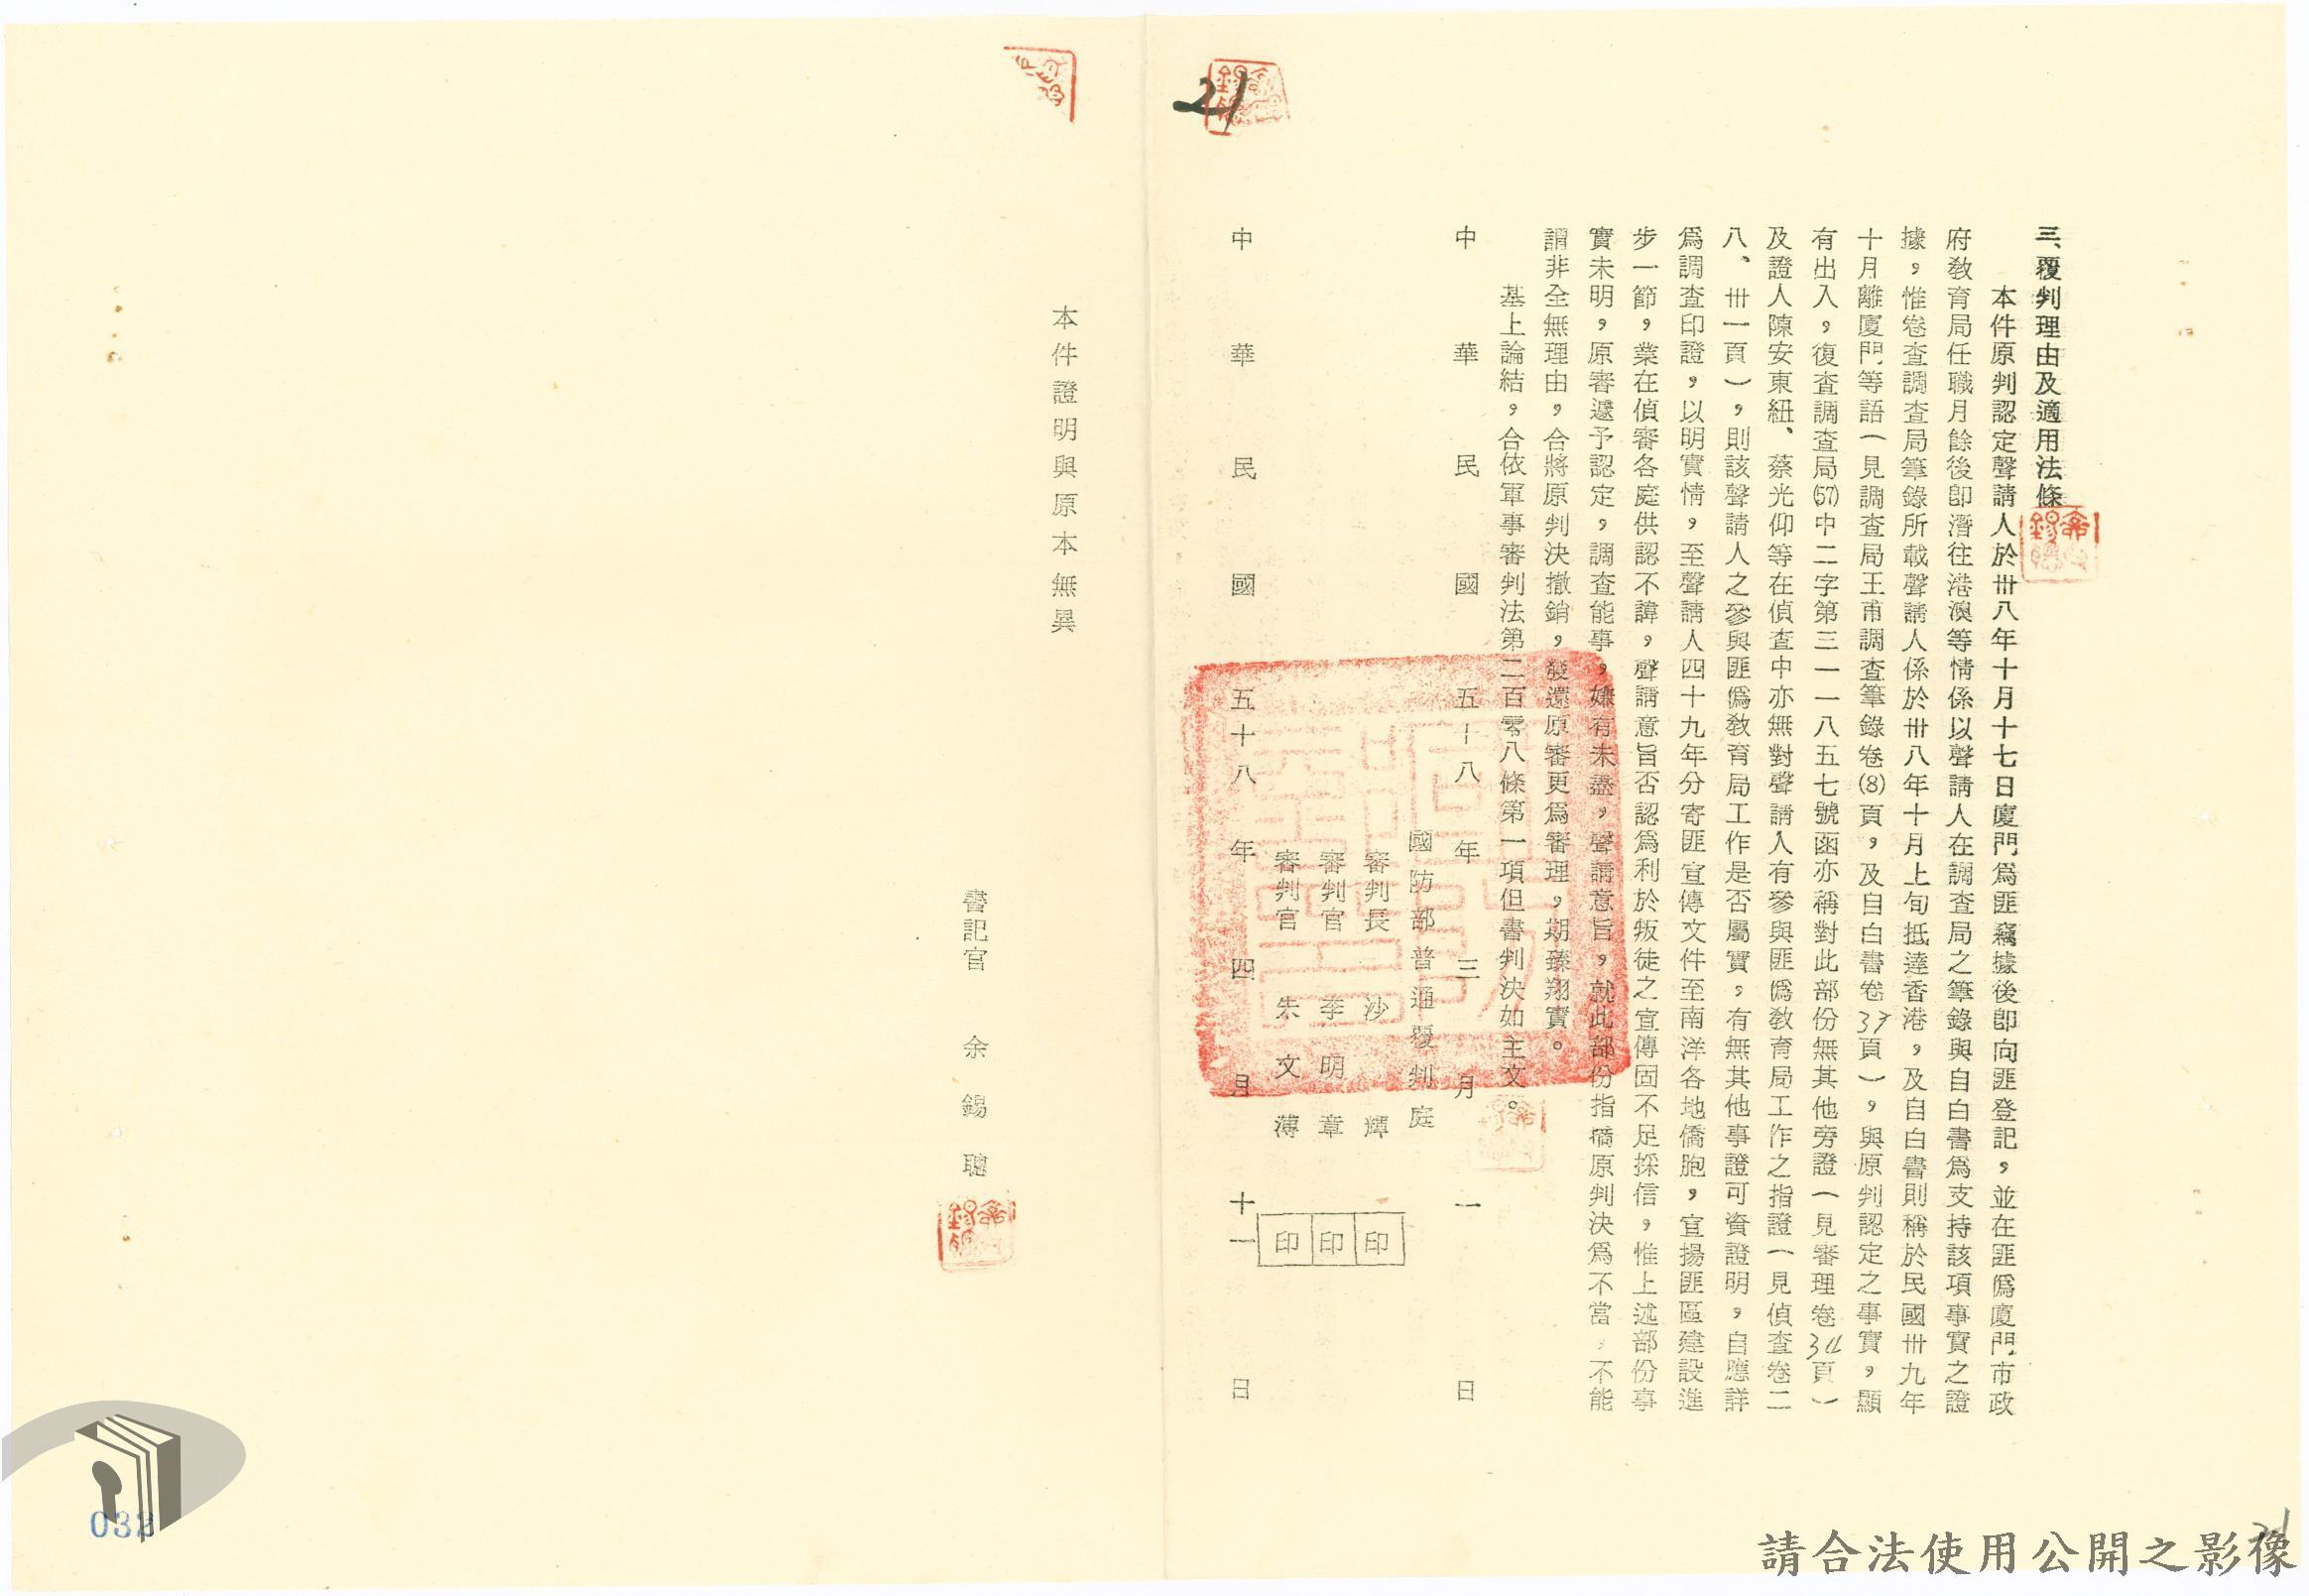 三、覆判理由及適用法條
本件原判認定聲請人於卅八年十月十七日廈門爲匪竊據後卽向匪登記，並在匪僞廈門市政
府敎育局任職月餘後卽潛往港澳等情係以聲請人在調查局之筆錄與自白書爲支持該項事實之證
據，惟卷查調查局筆錄所載聲請人係於卅八年十月上旬抵達香港，及自白書則稱於民國卅九年
十月離廈門等語（見調查局王甫調查筆錄卷(8)頁，及自白書卷37頁），與原判認定之事實，顯
有出入，復查調查局(57)中二字第三一一八五七號函亦稱對此部份無其他旁證（見審理卷34頁）
及證人陳安東紐、蔡光仰等在偵查中亦無對聲請人有參與匪僞敎育局工作之指證（見偵查卷二
八、卅一頁），則該聲請人之參與匪僞敎育局工作是否屬實，有無其他事證可資證明，自應詳
爲調查印證，以明實情，至聲請人四十九年分寄匪宣傳文件至南洋各地僑胞，宣揚匪區建設進
步一節，業在偵審各庭供認不諱，聲請意旨否認爲利於叛徒之宣傳固不足採信，惟上述部份事
實未明，原審遽予認定，調查能事，嫌有未盡，聲請意旨，就此部份指摘原判決爲不當，不能
謂非全無理由，合將原判決撤銷，發還原審更爲審理，期臻翔實。
基上論結，合依軍事審判法第二百零八條第一項但書判決如主文。
中華民國五十八年三月一日
國防部普通覆判庭
審判長 沙 輝 印
審判官 李明章 印
審判官 朱文溥 印
中華民國五十八年四月十一日
21
本件證明與原本無異
書記官 余錫聰
033
請合法使用公開之影像